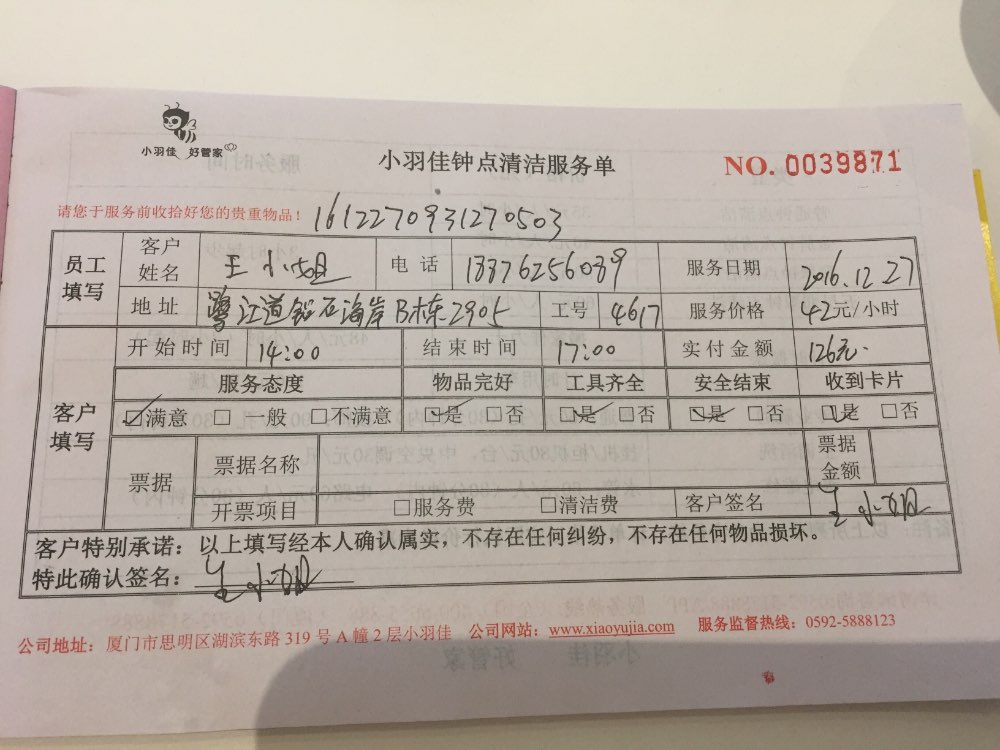 小羽佳 好管家
小羽佳钟点清洁服务单
NO. 0039871
请您于服务前收拾好您的贵重物品！ 1612270931270503
员工填写 客户姓名 王小姐 电话 18876256089 服务日期 2016.12.27
地址 鹭江道钻石海岸B栋2905 工号 4617 服务价格 42元/小时
客户填写 开始时间 14:00 结束时间 17:00 实付金额 126元.
服务态度 物品完好 工具齐全 安全结束 收到卡片
☑满意 □一般 □不满意 ☑是 □否 ☑是 □否 ☑是 □否 ☑是 □否
票据 票据名称 票据金额
开票项目 □服务费 □清洁费 客户签名 王小姐
客户特别承诺：以上填写经本人确认属实，不存在任何纠纷，不存在任何物品损坏。
特此确认签名：王小姐
公司地址：厦门市思明区湖滨东路 319 号 A 幢 2 层小羽佳 公司网站：www.xiaoyujia.com 服务监督热线：0592-5888123